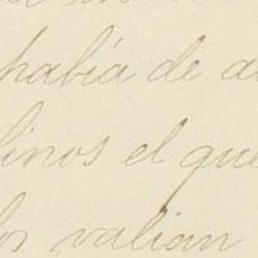 había de a
linos el que
los valian